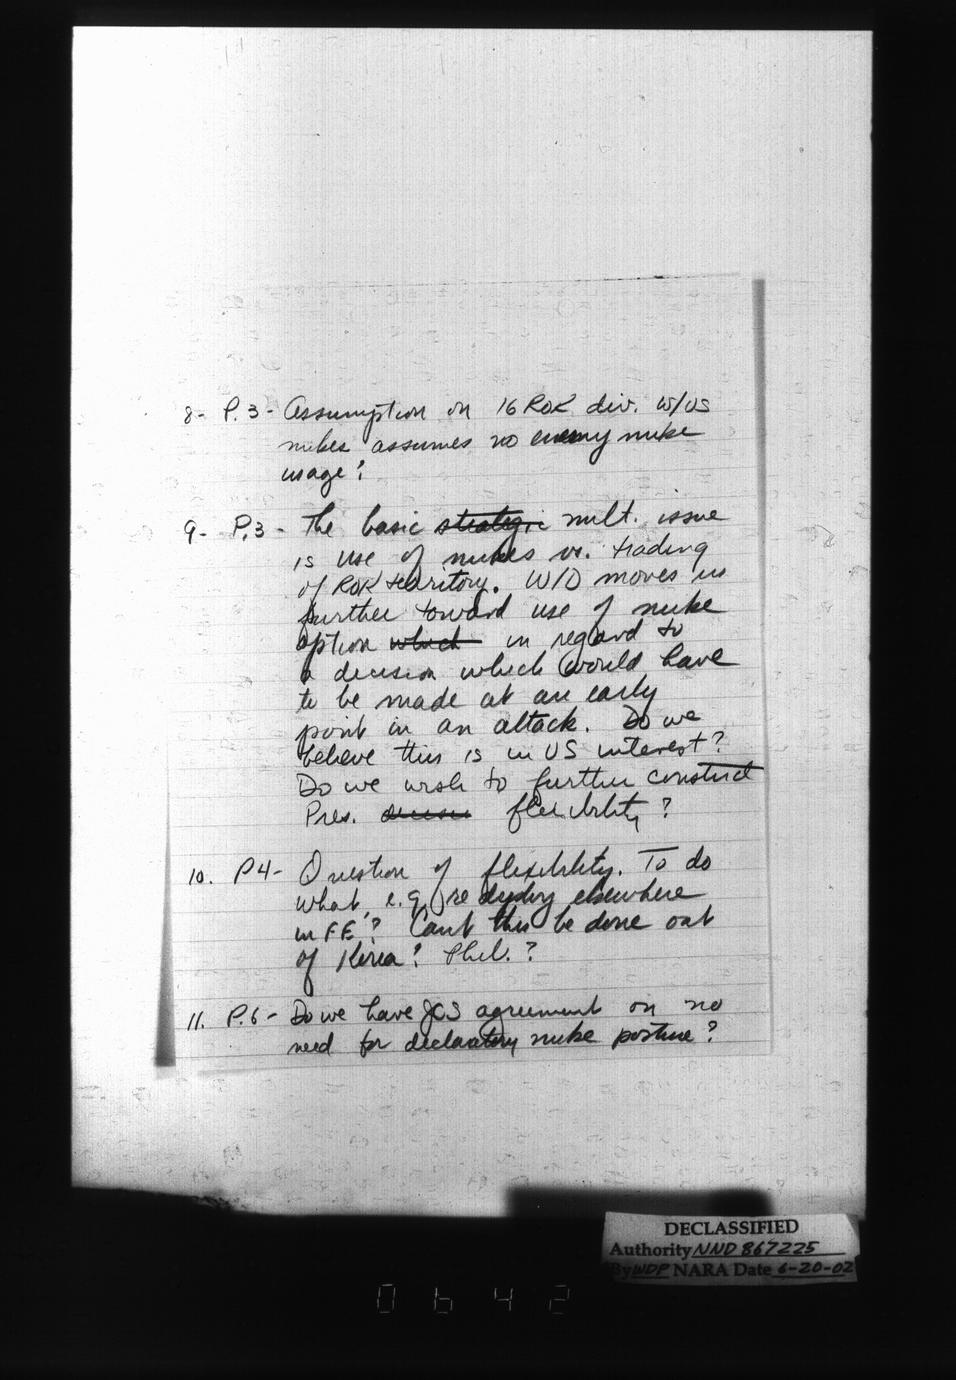 8- P.3- Assumption on 16 ROK div. W/US
nukes assumes no enemy nuke
usage?
9- P.3- The basic strategic milt. issue
is use of nukes vs. trading
of ROK territory. W/D moves us
further toward use of nuke
option which in regard to
a decision which would have
to be made at an early
point in an attack. Do we
believe this is in US interest?
Do we wish to further constrict
Pres. flexibility?
10. P4- Question of flexibility. To do
what, e.g. redeploy elsewhere
in FE? Can't this be done out
of Korea? Phil.?
11. P.6- Do we have JCS agreement on no
need for declaratory nuke posture?
DECLASSIFIED
Authority NND 867225
By WDP NARA Date 6-20-02
0642